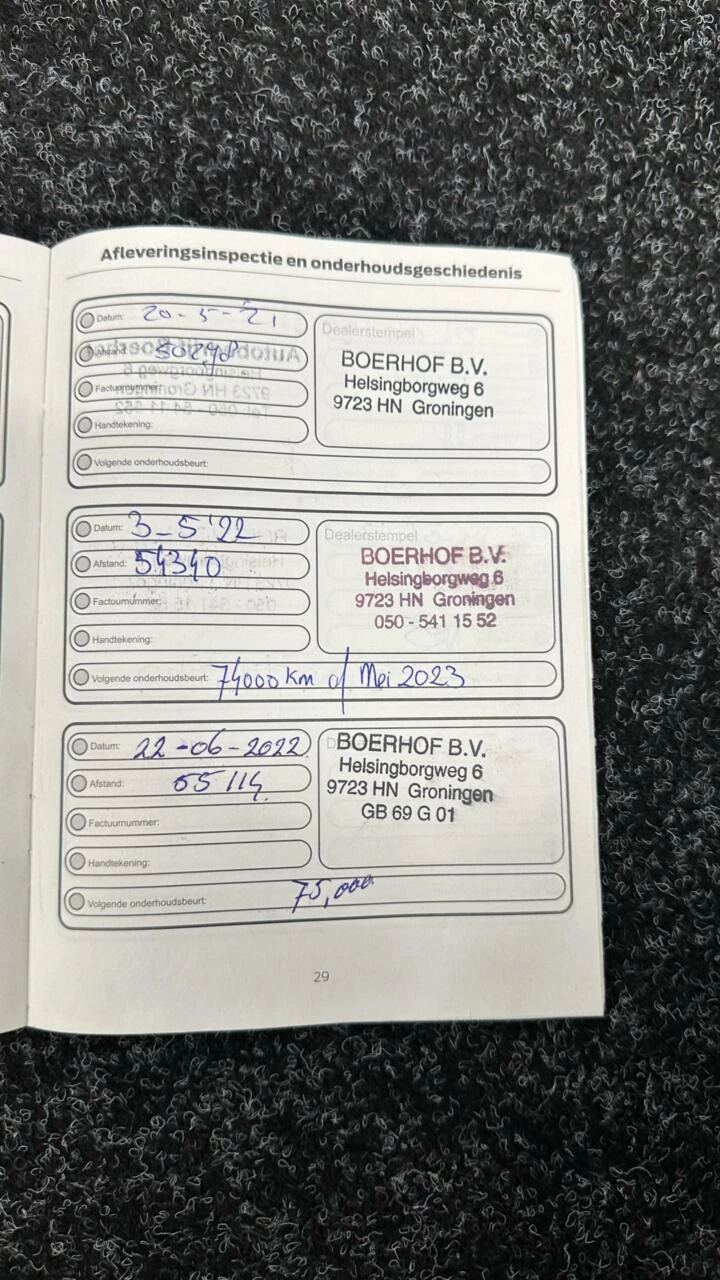 Afleveringsinspectie en onderhoudsgeschiedenis
Datum: 20-5-21
Afstand:
Factuurnummer:
Handtekening:
Volgende onderhoudsbeurt:
Dealerstempel
BOERHOF B.V.
Helsingborgweg 6
9723 HN Groningen
Datum: 3-5'22
Afstand: 54340
Factuurnummer:
Handtekening:
Volgende onderhoudsbeurt: 74000 km of Mei 2023
Dealerstempel
BOERHOF B.V.
Helsingborgweg 6
9723 HN Groningen
050 - 541 15 52
Datum: 22-06-2022
Afstand: 55114
Factuurnummer:
Handtekening:
Volgende onderhoudsbeurt: 75,000
BOERHOF B.V.
Helsingborgweg 6
9723 HN Groningen
GB 69 G 01
29